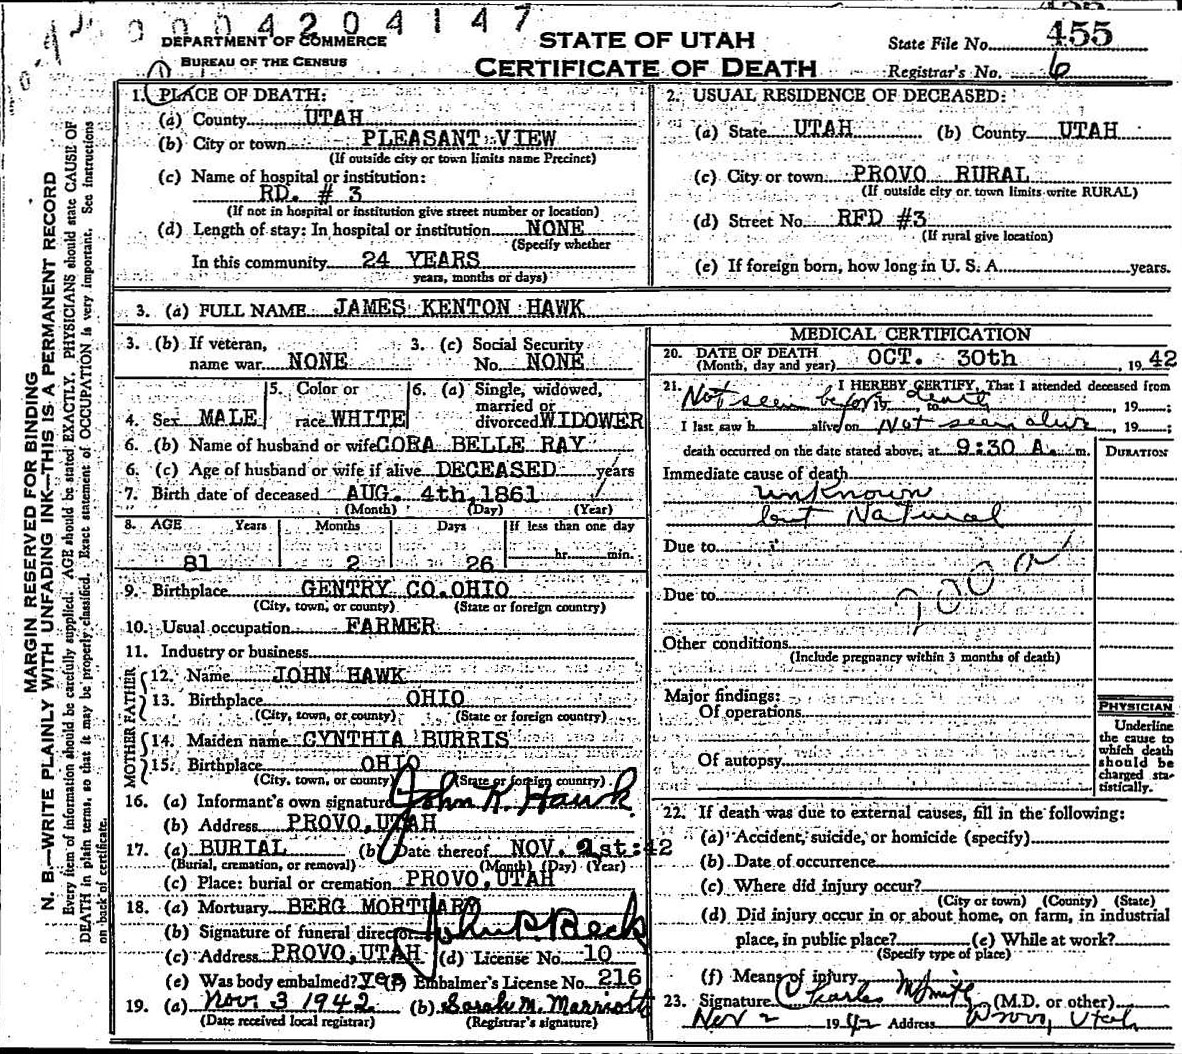 0004204147
DEPARTMENT OF COMMERCE
BUREAU OF THE CENSUS
STATE OF UTAH
CERTIFICATE OF DEATH
State File No. 455
Registrar's No. 6
MARGIN RESERVED FOR BINDING
N. B.—WRITE PLAINLY WITH UNFADING INK—THIS IS A PERMANENT RECORD
Every item of information should be carefully supplied. AGE should be stated EXACTLY. PHYSICIANS should state CAUSE OF
DEATH in plain terms, so that it may be properly classified. Exact statement of OCCUPATION is very important. See instructions
on back of certificate.
1. PLACE OF DEATH:
(a) County UTAH
(b) City or town PLEASANT VIEW
(If outside city or town limits name Precinct)
(c) Name of hospital or institution:
RD. # 3
(If not in hospital or institution give street number or location)
(d) Length of stay: In hospital or institution NONE
(Specify whether
In this community 24 YEARS
years, months or days)
2. USUAL RESIDENCE OF DECEASED:
(a) State UTAH (b) County UTAH
(c) City or town PROVO RURAL
(If outside city or town limits write RURAL)
(d) Street No. RFD #3
(If rural give location)
(e) If foreign born, how long in U. S. A. years.
3. (a) FULL NAME JAMES KENTON HAWK
3. (b) If veteran, 3. (c) Social Security
name war NONE No. NONE
5. Color or 6. (a) Single, widowed,
married or
4. Sex MALE race WHITE divorced WIDOWER
6. (b) Name of husband or wife CORA BELLE RAY
6. (c) Age of husband or wife if alive DECEASED years
7. Birth date of deceased AUG. 4th, 1861
(Month) (Day) (Year)
8. AGE Years Months Days If less than one day
81 2 26 hr. min.
9. Birthplace GENTRY CO. OHIO
(City, town, or county) (State or foreign country)
10. Usual occupation FARMER
11. Industry or business
FATHER
12. Name JOHN HAWK
13. Birthplace OHIO
(City, town, or county) (State or foreign country)
MOTHER
14. Maiden name CYNTHIA BURRIS
15. Birthplace OHIO
(City, town, or county) (State or foreign country)
16. (a) Informant's own signature John K. Hawk
(b) Address PROVO, UTAH
17. (a) BURIAL (b) Date thereof NOV. 1st: 42
(Burial, cremation, or removal) (Month) (Day) (Year)
(c) Place: burial or cremation PROVO, UTAH
18. (a) Mortuary BERG MORTUARY
(b) Signature of funeral director John P. Beck
(c) Address PROVO, UTAH (d) License No. 10
(e) Was body embalmed? yes (f) Embalmer's License No. 216
19. (a) Nov. 3 1942 (b) Sarah M. Marriott
(Date received local registrar) (Registrar's signature)
MEDICAL CERTIFICATION
20. DATE OF DEATH OCT. 30th 1942
(Month, day and year)
21. I HEREBY CERTIFY, That I attended deceased from
Not seen before death, to , 19 ;
I last saw h alive on Not seen alive, 19 ;
death occurred on the date stated above, at 9:30 A. m.
DURATION
Immediate cause of death
unknown
but Natural
Due to
Due to
200
Other conditions
(Include pregnancy within 3 months of death)
Major findings:
Of operations
Of autopsy
PHYSICIAN
Underline
the cause to
which death
should be
charged sta-
tistically.
22. If death was due to external causes, fill in the following:
(a) Accident, suicide, or homicide (specify)
(b) Date of occurrence
(c) Where did injury occur?
(City or town) (County) (State)
(d) Did injury occur in or about home, on farm, in industrial
place, in public place? (e) While at work?
(Specify type of place)
(f) Means of injury
23. Signature Charles M Smith (M.D. or other)
Nov 2 1942 Address Provo, Utah